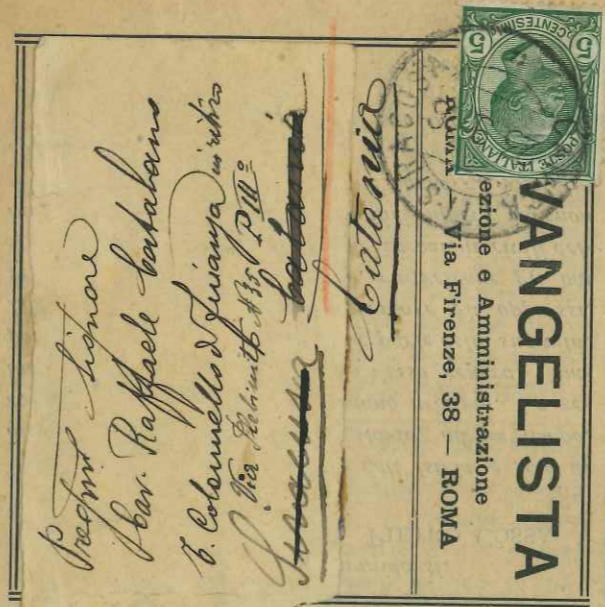 VANGELISTA
ezione e Amministrazione
Via Firenze, 38 — ROMA
5 CENTESIMI 5
POSTE ITALIANE
SIRACUSA
Signore
Cav. Raffaele Catalano
T. Colonnello di Finanza in ritiro
Via Plebiscito N 35 P III°
Siracusa
Catania
Catania